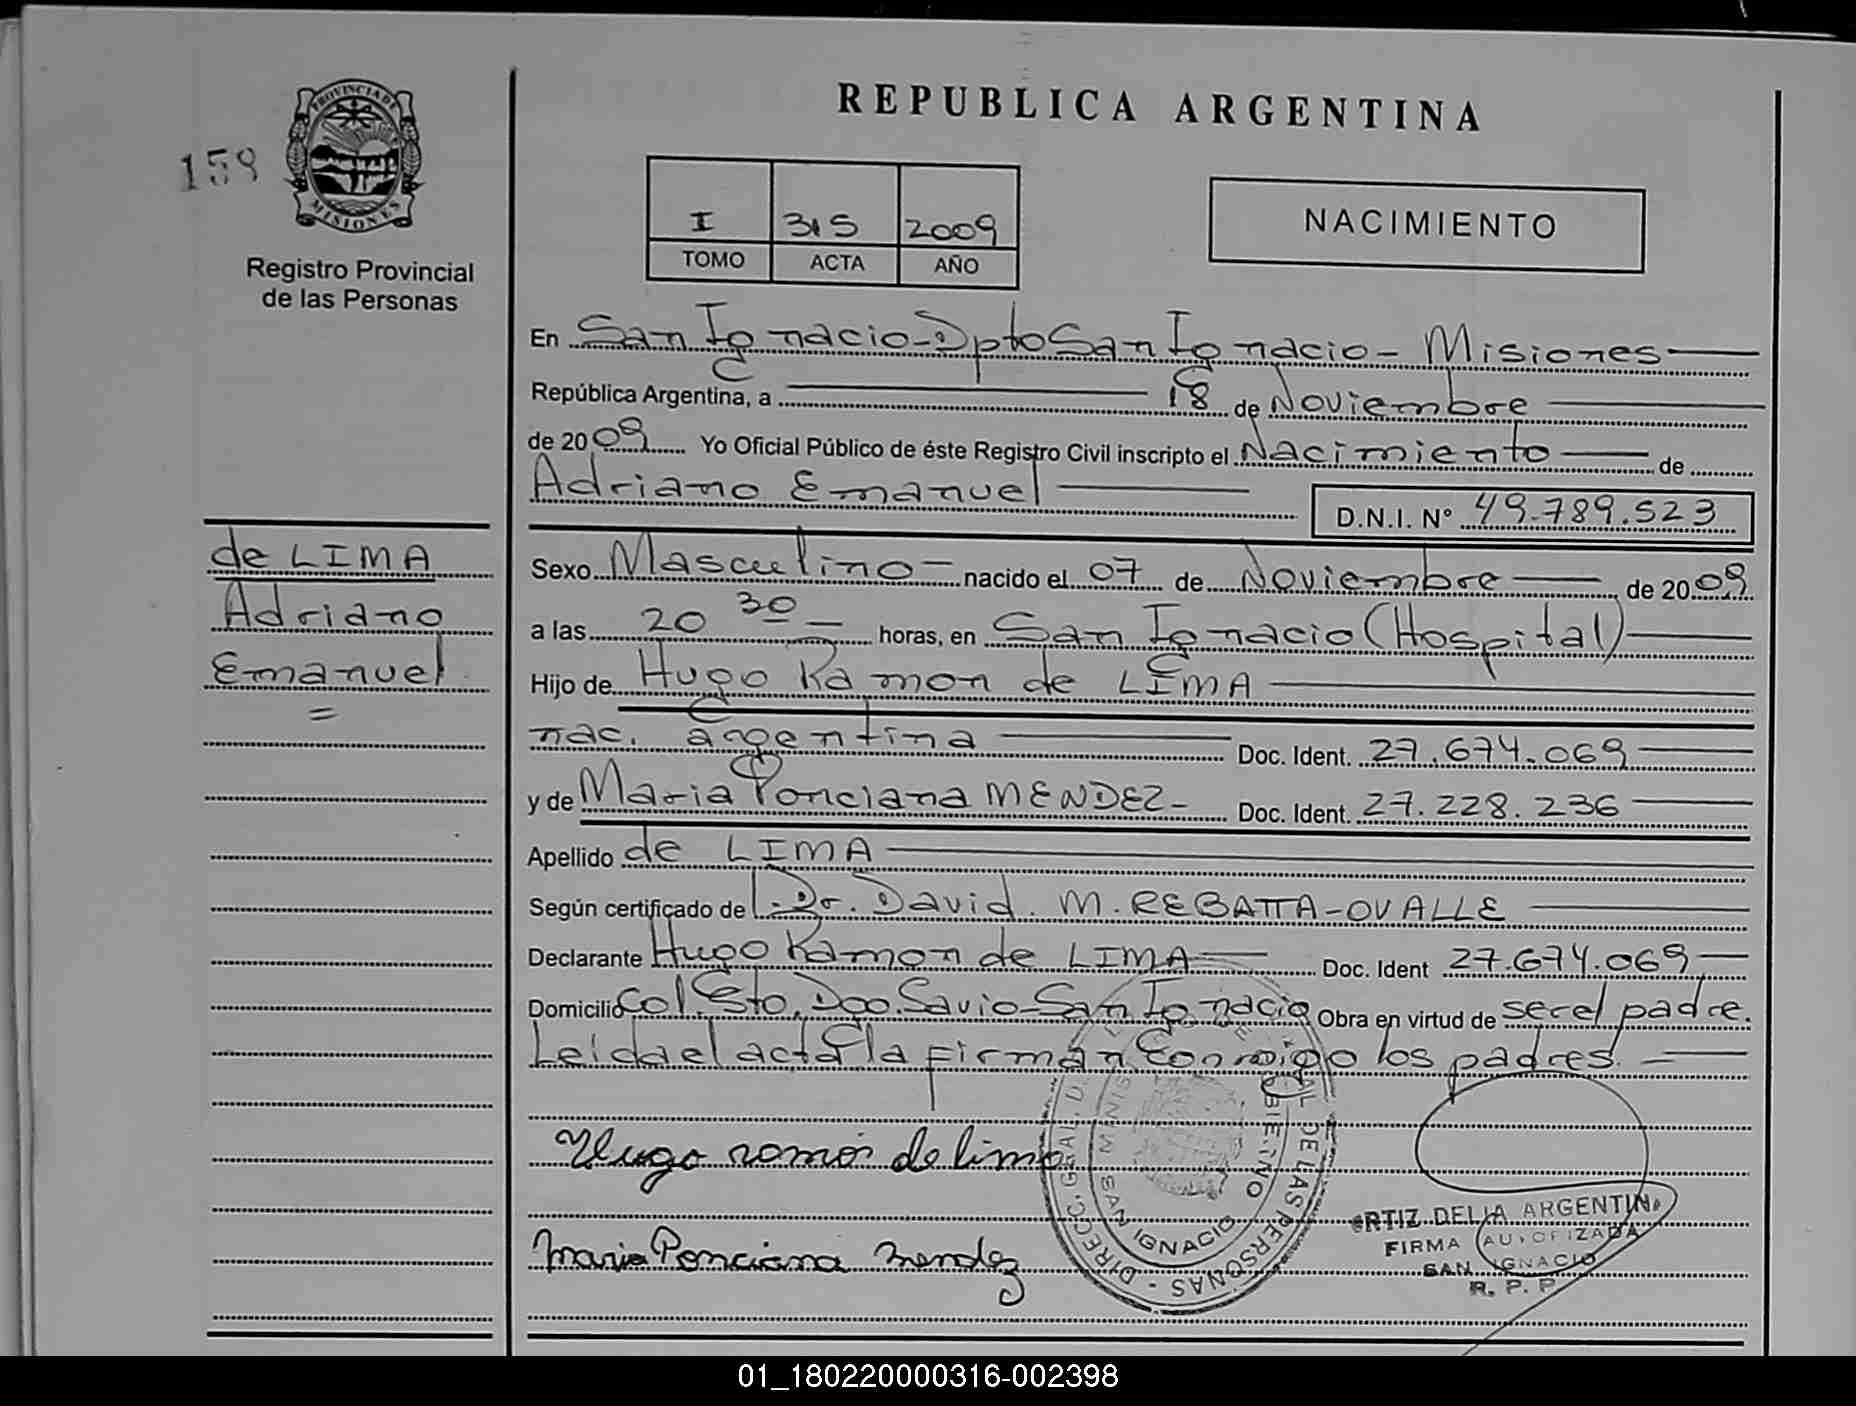 REPUBLICA ARGENTINA
158
PROVINCIA DE
MISIONES
Registro Provincial
de las Personas
I 315 2009
TOMO ACTA AÑO
NACIMIENTO
En San Ignacio - Dpto San Ignacio - Misiones
República Argentina, a 18 de Noviembre
de 2009 Yo Oficial Público de éste Registro Civil inscripto el Nacimiento de
Adriano Emanuel
D.N.I. N° 49.789.523
de LIMA
Adriano
Emanuel
=
Sexo Masculino - nacido el 07 de Noviembre de 2009
a las 20 30 horas, en San Ignacio (Hospital)
Hijo de Hugo Ramon de LIMA
nac. argentina Doc. Ident. 27.674.069
y de Maria Ponciana MENDEZ - Doc. Ident. 27.228.236
Apellido de LIMA
Según certificado de Dr. David. M. REBATTA-OVALLE
Declarante Hugo Ramon de LIMA Doc. Ident 27.674.069
Domicilio Col. Sto. Dgo. Savio - San Ignacio Obra en virtud de ser el padre.
Leida el acta la firman conmigo los padres.
Hugo ramón de lima
Maria Ponciana Mendez
DIRECC. GRAL. DE LAS PERSONAS
SAN IGNACIO
ORTIZ DELIA ARGENTINA
FIRMA AUTORIZADA
SAN IGNACIO
R. P. P.
01_180220000316-002398